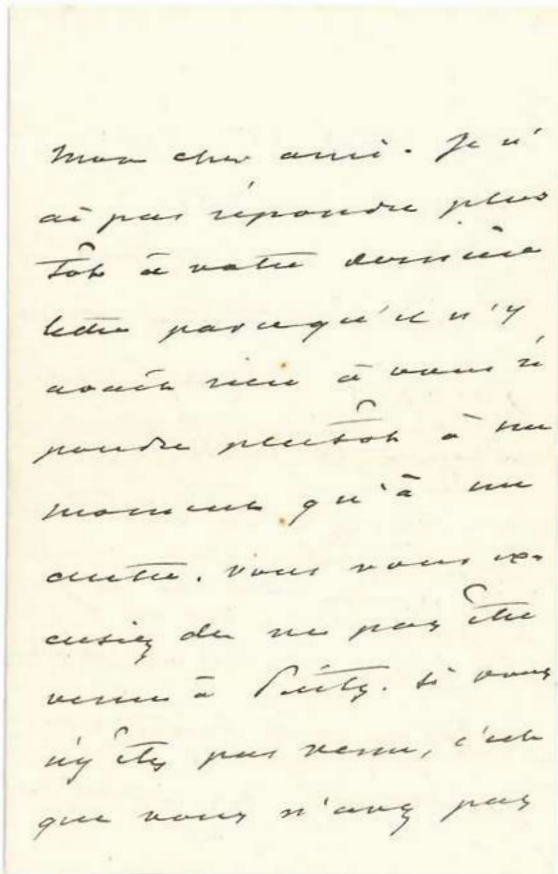 Mon cher ami. Je n'
ai pas répondre plus
tôt à votre dernière
lettre parcequ'il n'y
avait rien à vous ré
pondre plutôt à un
moment qu'à un
autre. Vous vous ex-
cusiez de ne pas être
venu à Puits. Si vous
n'y êtes pas venu, c'est
que vous n'avez pas